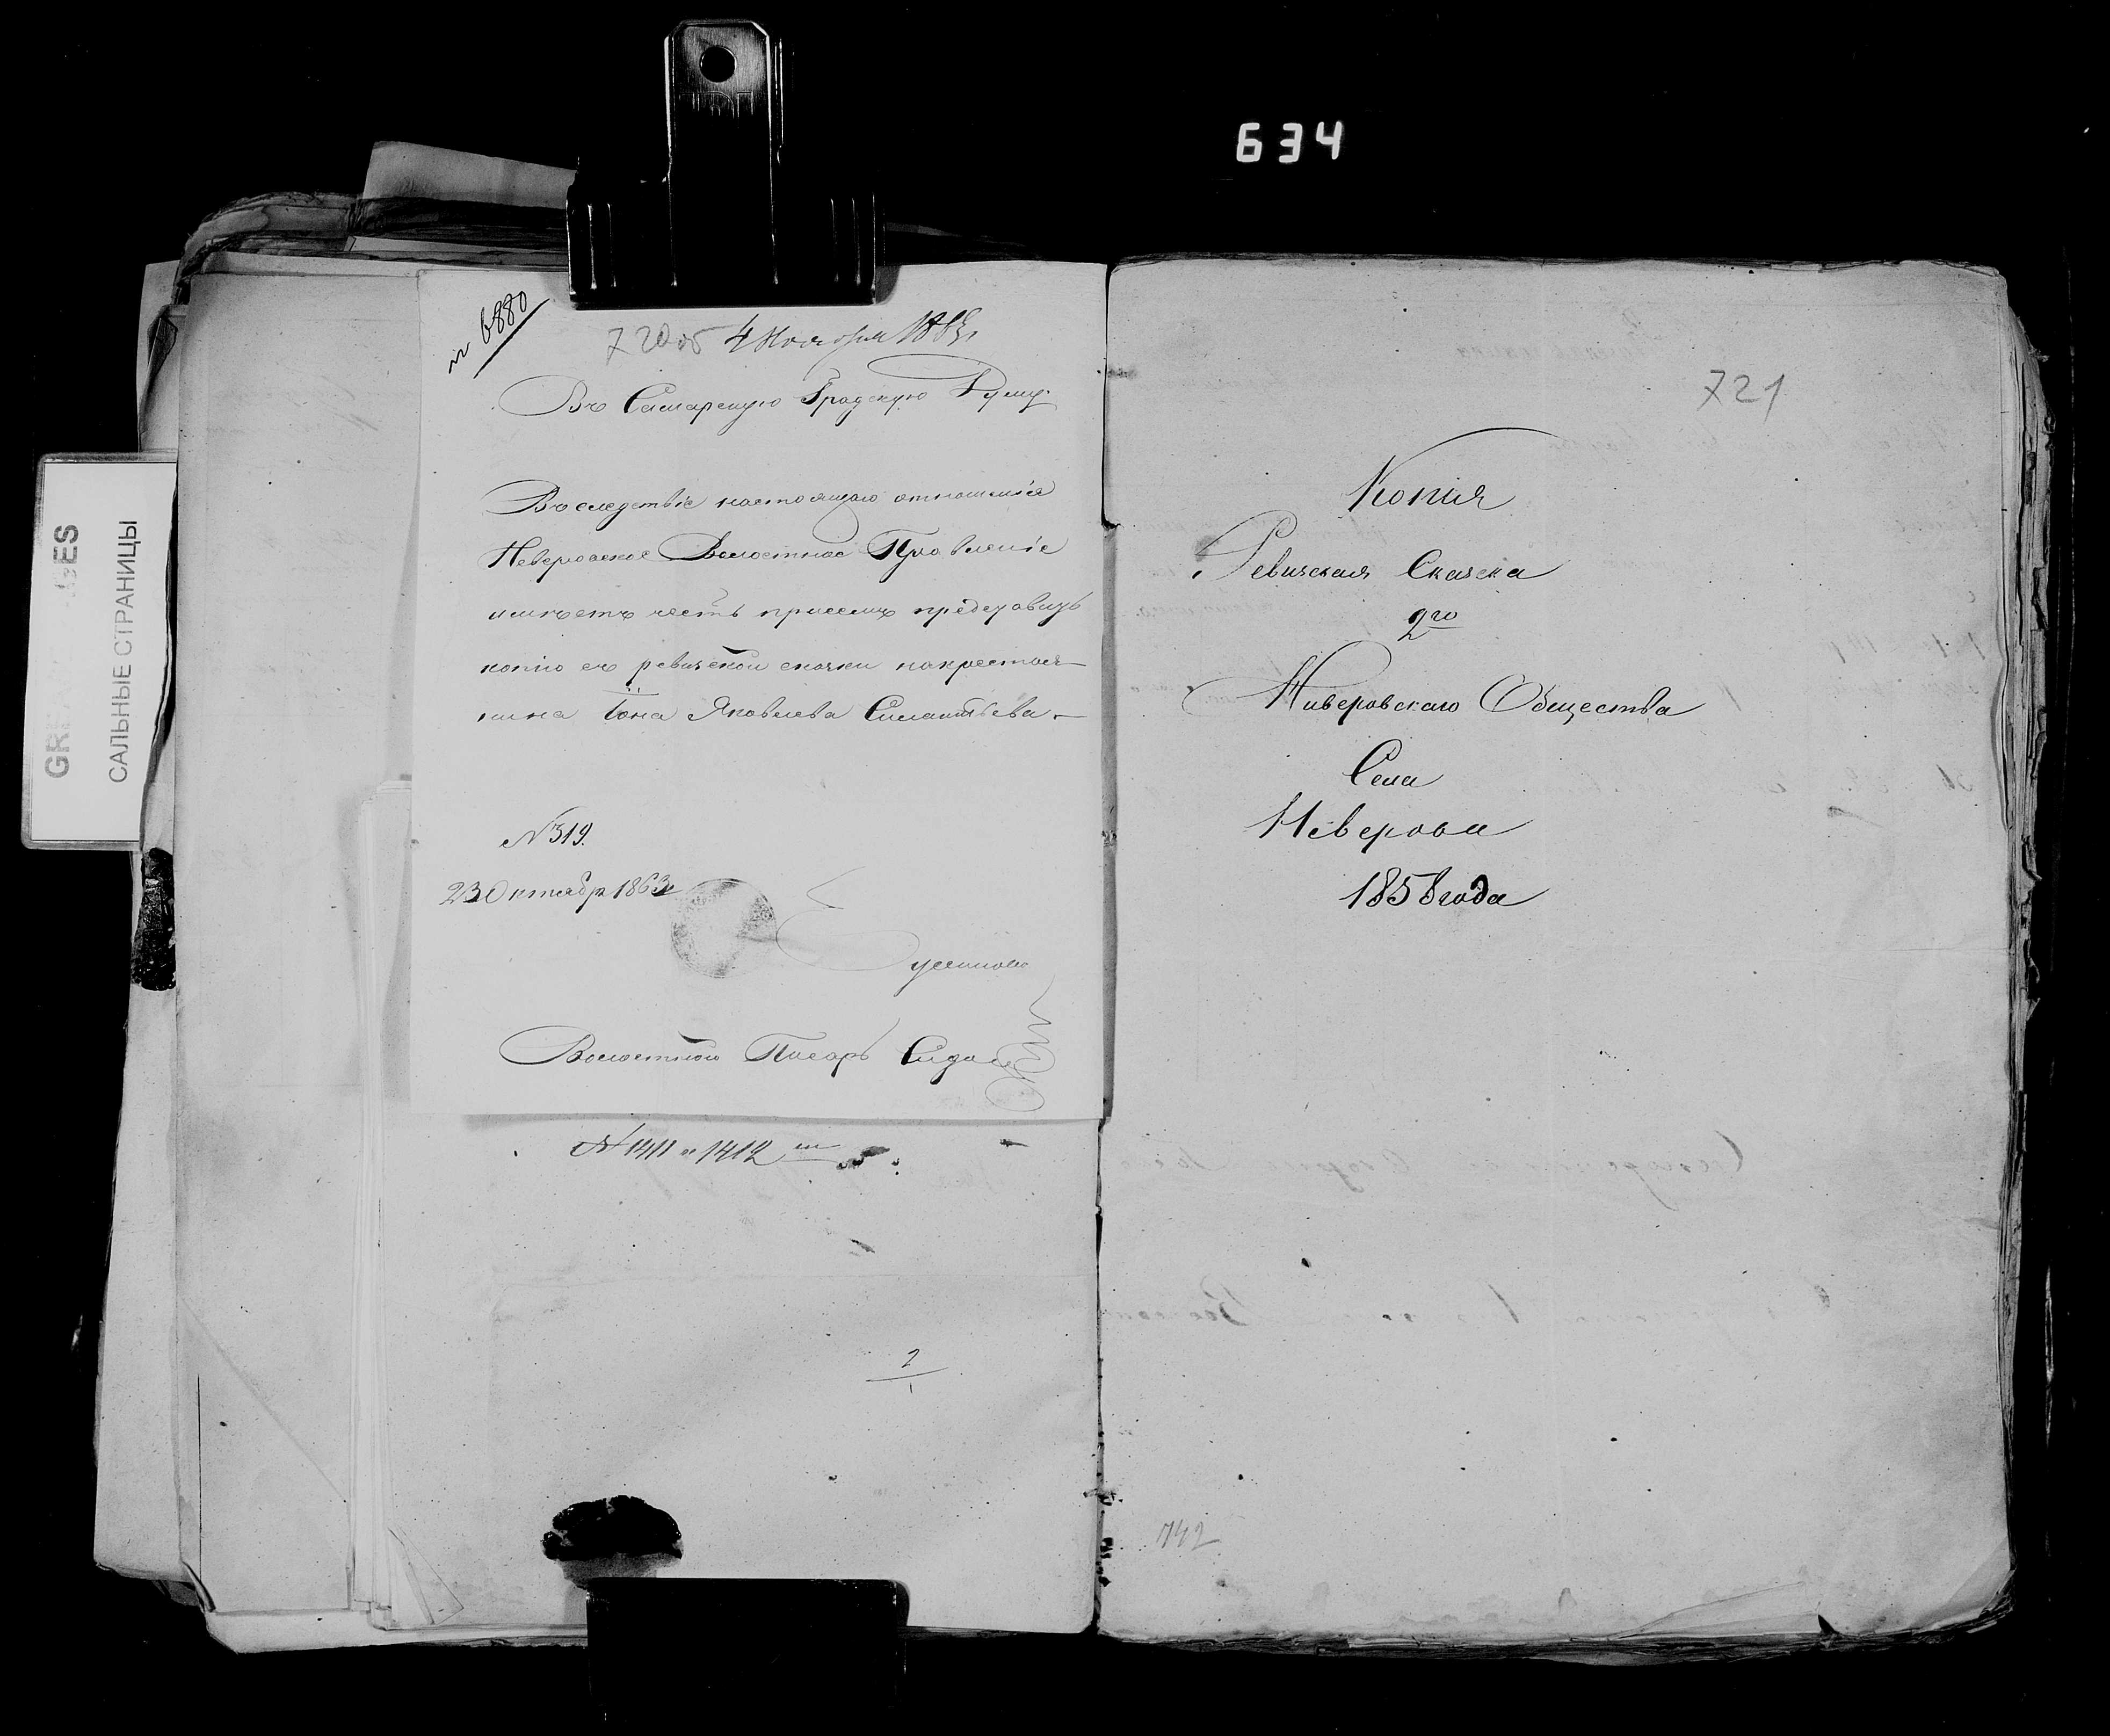 634
GREASY PAGES
САЛЬНЫЕ СТРАНИЦЫ
№ 6880
720об 4 Ноября 1863г
Въ Самарскую Градскую Думу.
Въ следствіе настоящаго отношенія
Неверовское Волостное Правленіе
имѣетъ честь присемъ представить
копію съ ревизской скаски накрестья-
нина Іона Яковлева Силантьева.
№ 319.
23 Октября 1863г
Волостной Писарь
№ 1411 и 1412
2
1
721
Копия
Ревизская Скаска
2го
Неверовскаго Общества
Села
Неверова
1858 года
742